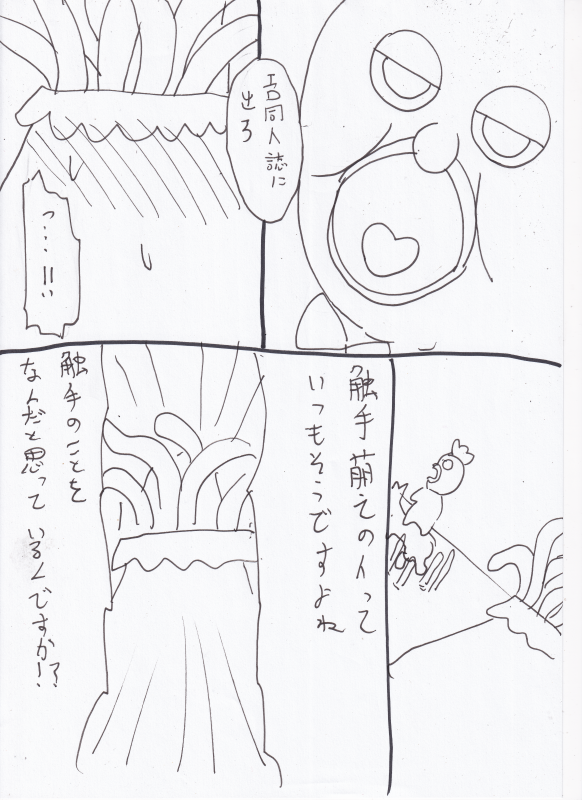 エロ同人誌に
出ろ
っ…!!い
触手萌えの人って
いつもそうですよね
触手のことを
なんだと思っているんですか!?